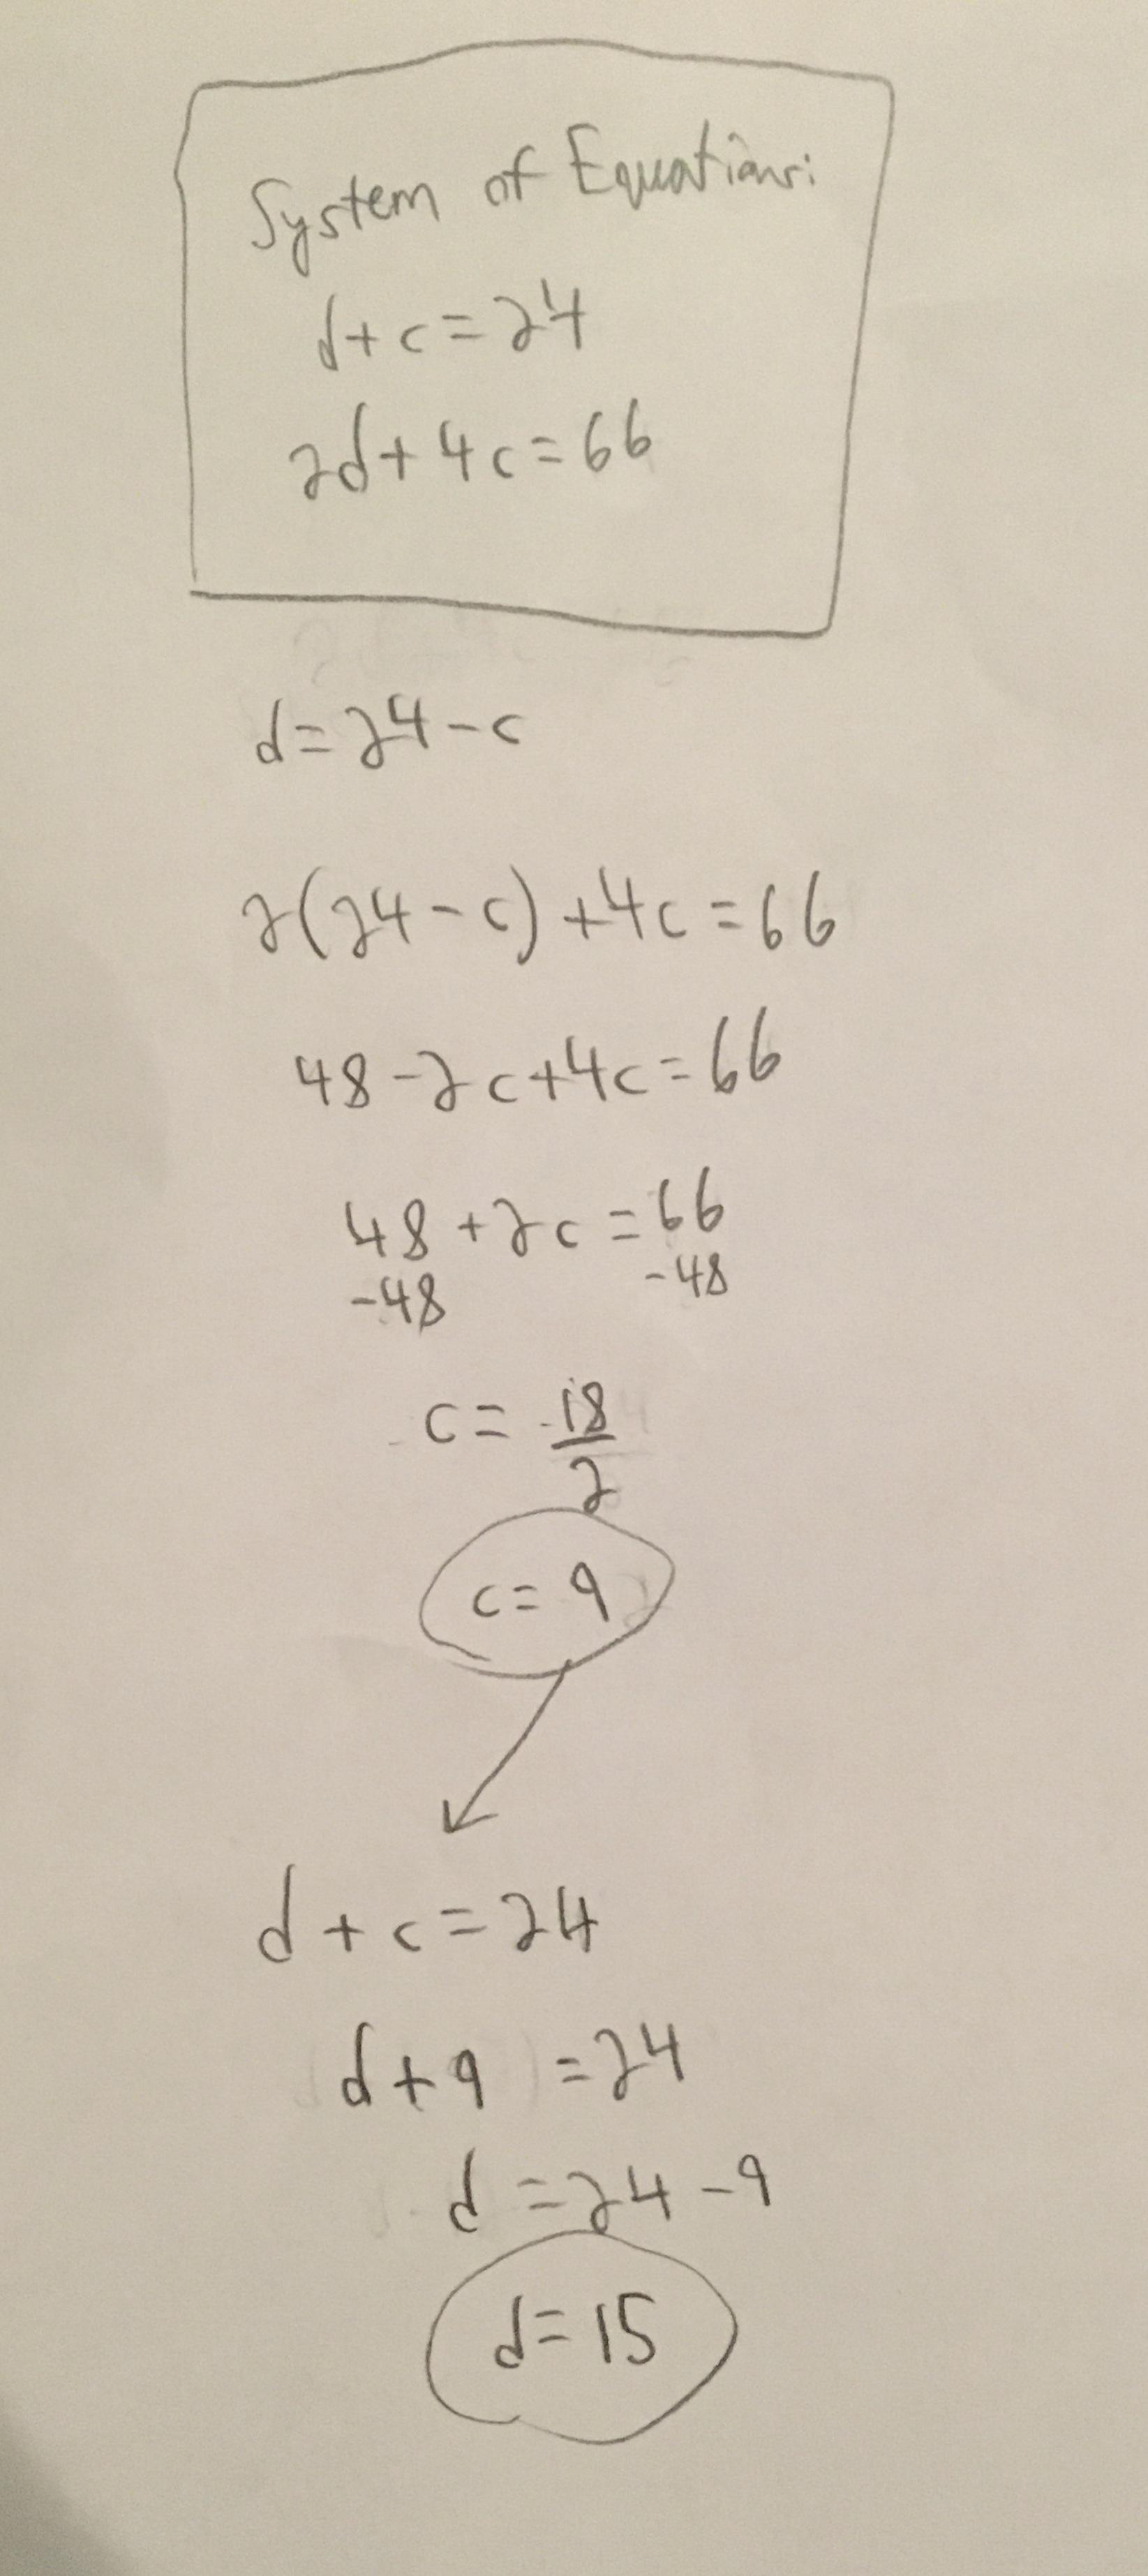 System of Equations:
d+c=24
2d+4c=66
d=24-c
2(24-c)+4c=66
48-2c+4c=66
48+2c=66
-48 -48
c=18/2
c=9
d+c=24
d+9=24
d=24-9
d=15